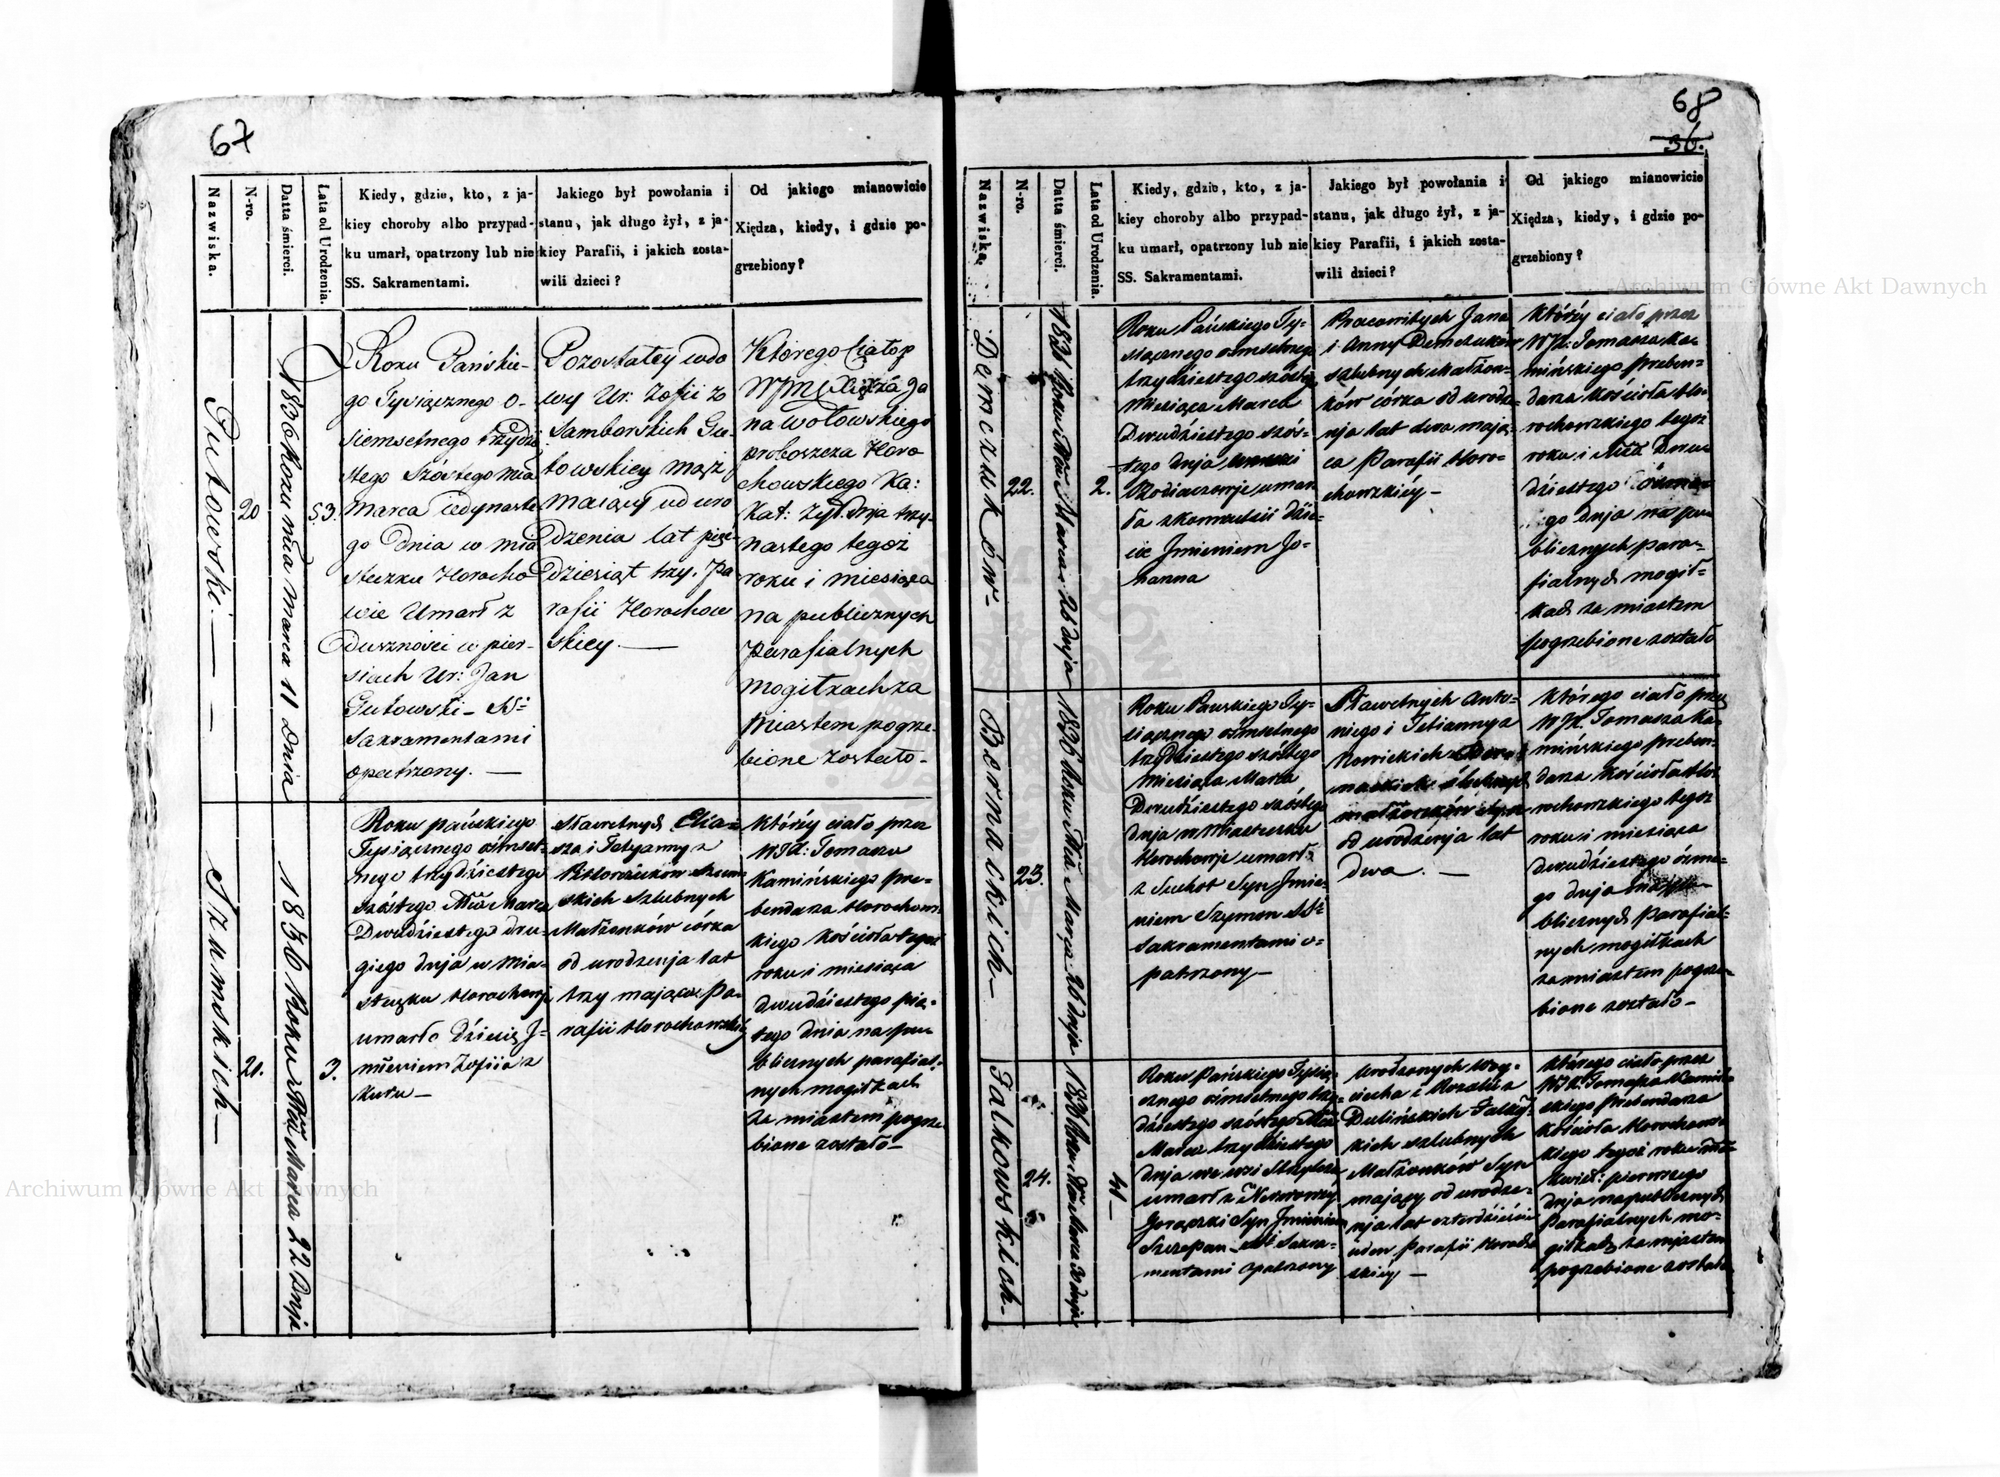 67
Nazwiska.
N-ro.
Datta śmierci.
Lata od Urodzenia.
Kiedy, gdzie, kto, z ja-
kiey choroby albo przypad-
ku umarł, opatrzony lub nie
SS. Sakramentami.
Jakiego był powołania i
stanu, jak długo żył, z ja-
kiey Parafii, i jakich zosta-
wili dzieci?
Od jakiego mianowicie
Xiędza, kiedy, i gdzie po-
grzebiony?
Gutowski.
20
1836 Roku mca marca 11 Dnia
53.
Roku Pańskie-
go Tysiącznego o-
siemsetnego trzydzie
stego Szóstego mca
Marca Jedynaste
go Dnia w mia
steczku Horocho
wie Umarł z
Duszności w pier-
siach Ur: Jan
Gutowski – SS:
Sakramentami
opatrzony. —
Pozostałey wdo
wy Ur: Zofii z
Samborskich Gu-
towskiey mąż
maiący od uro
dzenia lat pięć
dziesiąt trzy. Pa
rafii Horochow
skiey. —
Którego Ciało p
WJmć Xiędza Ja
na Wołowskiego
proboszcza Horo
chowskiego Ka:
Kat: Zyt: Dnia trzy-
nastego tegoż
roku i miesiąca
na publicznych
Parafialnych
Mogiłkach za
Miastem pogrze-
bione zostało-
Szumskich —
21.
1836 Roku Mca Marca 22 Dnja
3.
Roku pańskiego
Tysiącznego ośmset-
nego trzydziestego
szóstego Mca Marca
Dwudziestego dru-
giego dnja w mia-
steczku Horochowje
umarło Dziecię J-
mieniem Zofiia z
Kuru —
Sławetnych Elia-
sza i Tetyanny z
Szum-
skich szlubnych
Małżonków córka
od urodzenja lat
trzy mająca Pa-
rafii Horochowskiéj
Któréy ciało przez
WJX: Tomasza
Kamińskiego pre-
bendaza Horochows-
kiego Kościoła tegoż
roku i miesiąca
dwudziestego pią-
tego dnia na pu-
blicznych parafial-
nych mogiłkach
za miastem pogrze
bione zostało —
68
36.
Nazwiska.
N-ro.
Datta śmierci.
Lata od Urodzenia.
Kiedy, gdzie, kto, z ja-
kiey choroby albo przypad-
ku umarł, opatrzony lub nie
SS. Sakramentami.
Jakiego był powołania i
stanu, jak długo żył, z ja-
kiey Parafii, i jakich zosta-
wili dzieci?
Od jakiego mianowicie
Xiędza, kiedy, i gdzie po-
grzebiony?
Demczuków-
22.
1836 Roku Mca Marca 26 dnja
2.
Roku Pańskiego Ty-
siącznego ośmsetnego
trzydziestego szóstego
Miesiąca Marca
Dwudziestego szós-
tego dnja
umar
ła z konwulsii dzie-
cie Jmieniem Jo-
hanna
Pracowitych Jana
i Anny Demczuków
szlubnych małżon-
ków córka od urodze-
nja lat dwa mają-
ca Parafii Horo-
chowskiéy —
Któréy ciało przez
WJX: Tomasza Ka-
mińskiego preben-
daza Kościoła Ho-
rochowskiego tegoż
roku i Mca Dwu
dziestego ósme-
go dnja na pu
blicznych para-
fialnych mogił-
kach za miastem
pogrzebione zostało
Bernackich —
23.
1836 Roku Mca Marca 26 dnja
Roku Pańskiego Ty-
siącznego ośmsetnego
trzydziestego szóstego
Miesiąca Marca
Dwudziestego szóstego
dnja w Miasteczku
Horochowje umarł
z Suchot Syn Jmie-
niem Szymon SS:
Sakramentami o-
patrzony —
Sławetnych Anto-
niego i Tetianny z
Nowickich Ber-
nackich szlubnych
małżonków Syn
od urodzenja lat
dwa. —
Którego ciało przez
WJX. Tomasza Ka-
mińskiego preben-
daza Kościoła Ho-
rochowskiego tegoż
roku i miesiąca
dwudziestego ósme-
go dnja na pu-
blicznych Parafial-
nych mogiłkach
za miastem pogrze-
bione zostało —
Falkowskich-
24.
1836 Roku Mca Marca 30 dnja
41 —
Roku Pańskiego Tysią-
cznego ośmsetnego trzy-
dziestego szóstego Mca
Marca trzydziestego
dnja we wsi
umarł z Nerwowey
Gorączki Syn Jmieniem
Szczepan – SS: Sakra-
mentami opatrzony
Urodzonych Woy-
ciecha i Rozalii z
Dulińskich Falko-
skich szlubnych
Małżonków Syn
mający od urodze-
nja lat czterdzieście
jeden Parafii Horocho
skiéy —
Którego ciało przez
WJX. Tomasza Kamiń-
skiego Prebendaza
Kościoła Horochows-
kiego tegoż roku mca
Kwiet: pierwszego
dnja na publicznych
Parafialnych mo-
giłkach za miastem
pogrzebione zostało
Archiwum Główne Akt Dawnych
Archiwum Główne Akt Dawnych